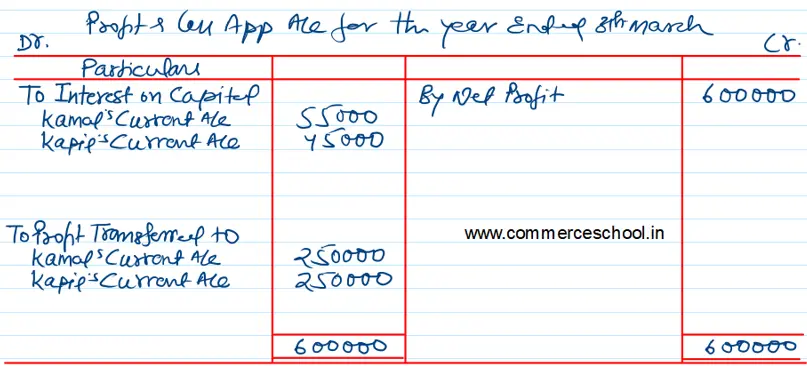 Profit & Loss App A/c for the year Ended 31st March
Dr. Cr.
Particulars
To Interest on Capital By Net Profit 600000
Kamal's Current A/c 55000
Kapil's Current A/c 45000
www.commerceschool.in
To Profit Transferred to
Kamal's Current A/c 250000
Kapil's Current A/c 250000
600000 600000